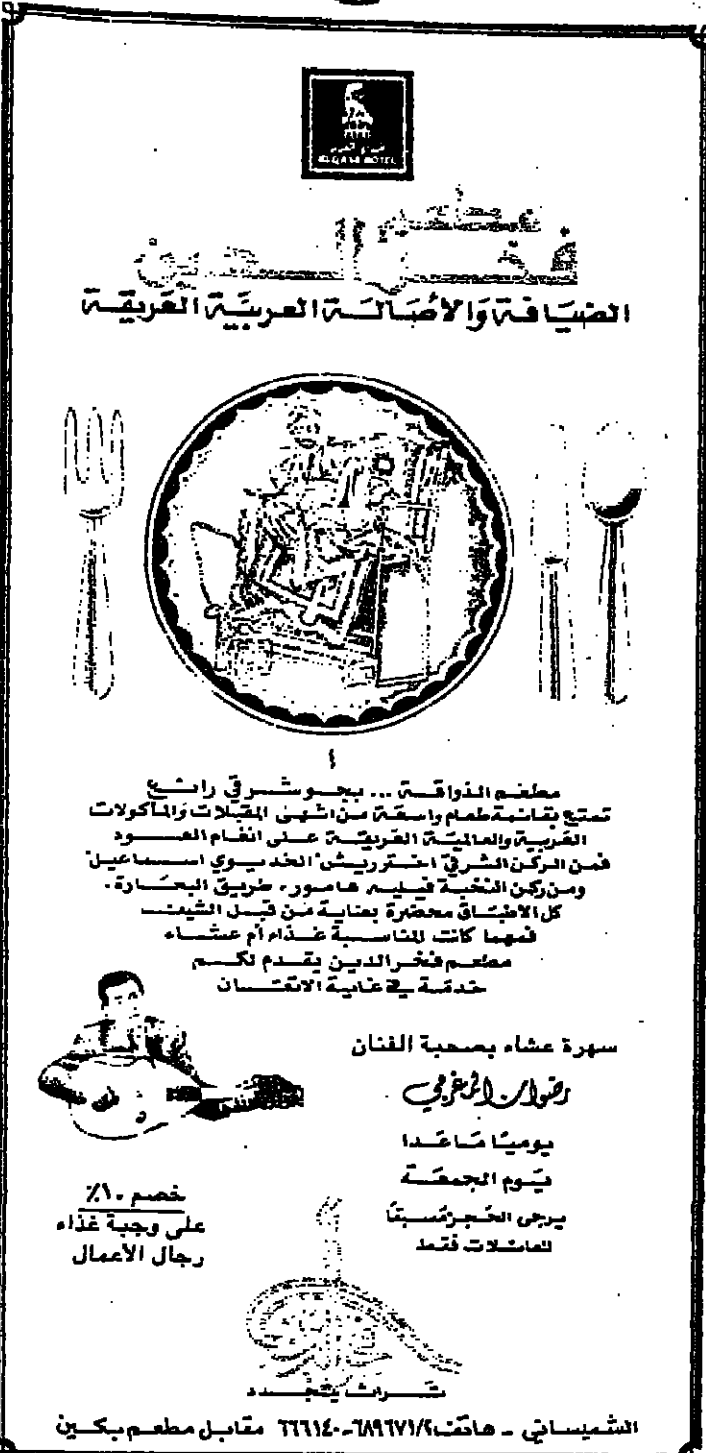 ALQASR HOTEL
الضيافة والأصالة العربية العريقة
مطعم الذواقة ... بجو شرقي رائع
تمتع بقائمة طعام واسعة من اشهى المقبلات والمأكولات
العربية والعالمية العريقة على انغام العود
فمن الركن الشرقي اختر ريش "الخديوي اسماعيل"
ومن ركن النخبة فيليه هامور، طريق البحارة.
كل الاطباق محضرة بعناية من قبل الشيف
فمهما كانت المناسبة غداء أم عشاء
مطعم فخر الدين يقدم لكم
خدمة في غاية الاتقان
سهرة عشاء بصحبة الفنان
رضوان المغربي
يوميًا ما عدا
يوم الجمعة
يرجى الحجز مسبقًا
للعائلات فقط
خصم ١٠٪
على وجبة غذاء
رجال الأعمال
تراث يتجدد
الشميساني - هاتف: ٦٨٩٦٧١/٢-٦٦٦١٤٠ مقابل مطعم بكين